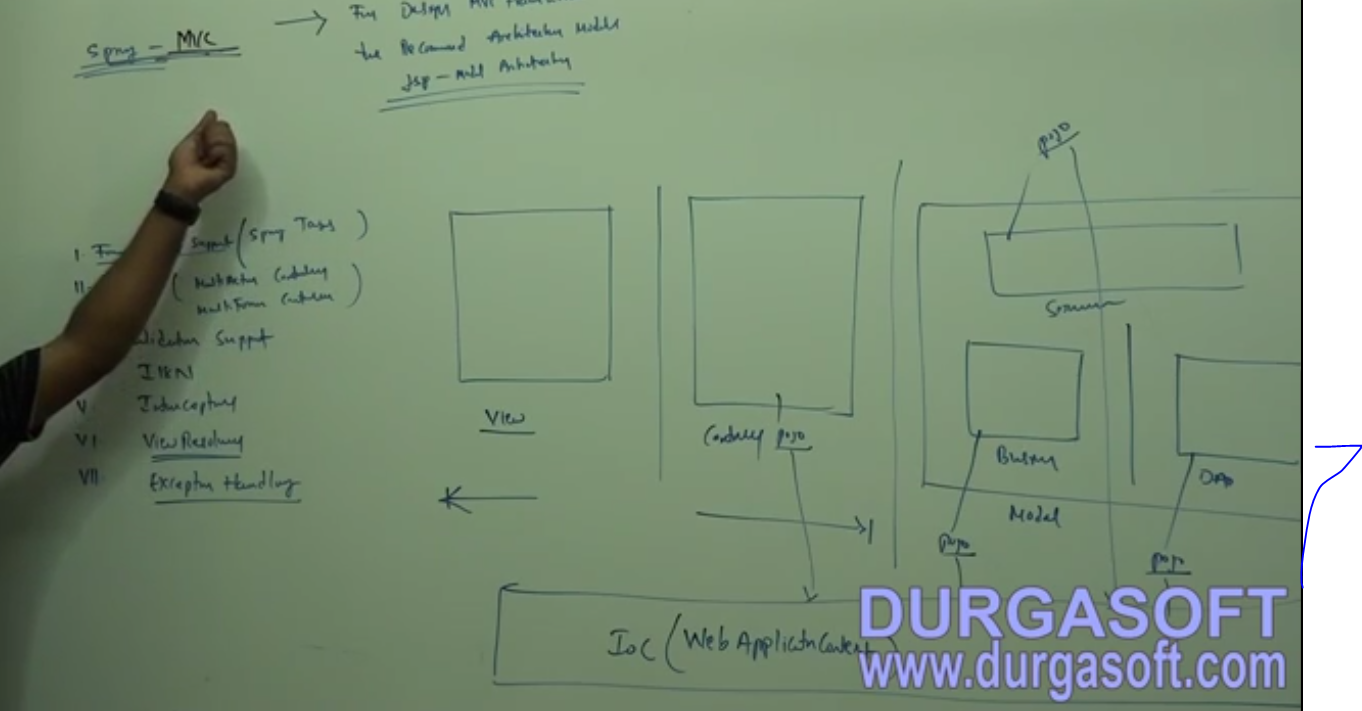 Spring - MVC
the Recomend Architecture Model
Jsp - Mod Architecture
I. Support (Spring Tags)
II. (MultiAction Controllery
MultiForm Controller)
Support
I18N
V Interceptors
VI ViewResolvery
VII. Exception Handling
pojo
Service
View
Controllery pojo
Business
DAO
Model
pojo
pojo
IoC (WebApplicationContext)
DURGASOFT
www.durgasoft.com